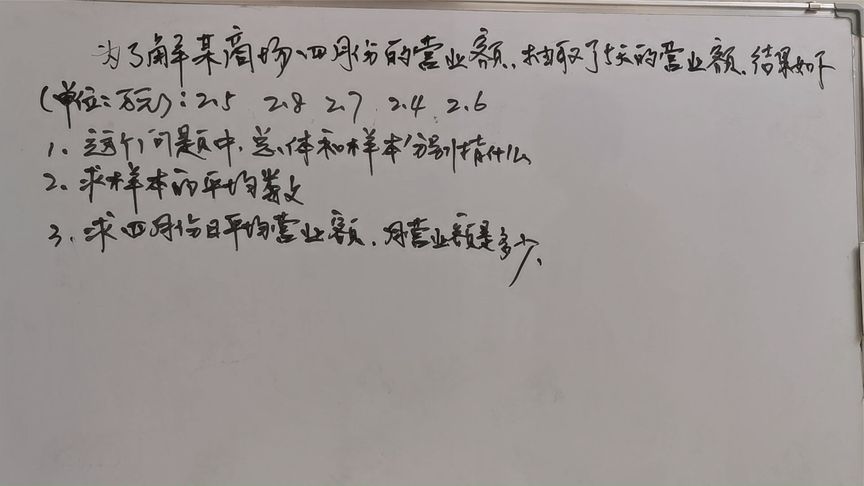 为了解某商场、四月份的营业额，抽取了5天的营业额，结果如下
(单位：万元)：2.5 2.8 2.7 2.4 2.6
1、这个问题中，总体和样本分别指什么
2、求样本的平均数
3、求四月份日平均营业额，月营业额是多少、